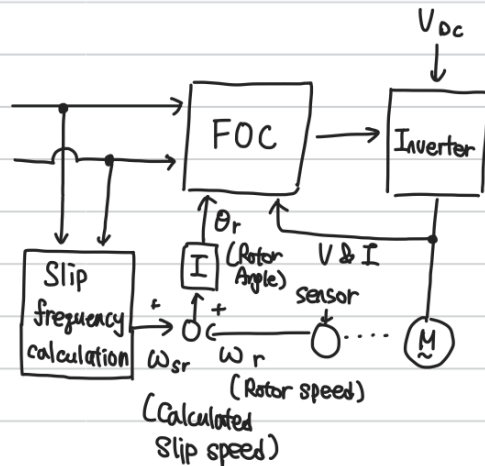 V DC
FOC
Inverter
θr
(Rotor
Angle)
V & I
I
Slip
frequency
calculation
sensor
+
+
ωsr
ωr
M
(Rotor speed)
(Calculated
Slip speed)